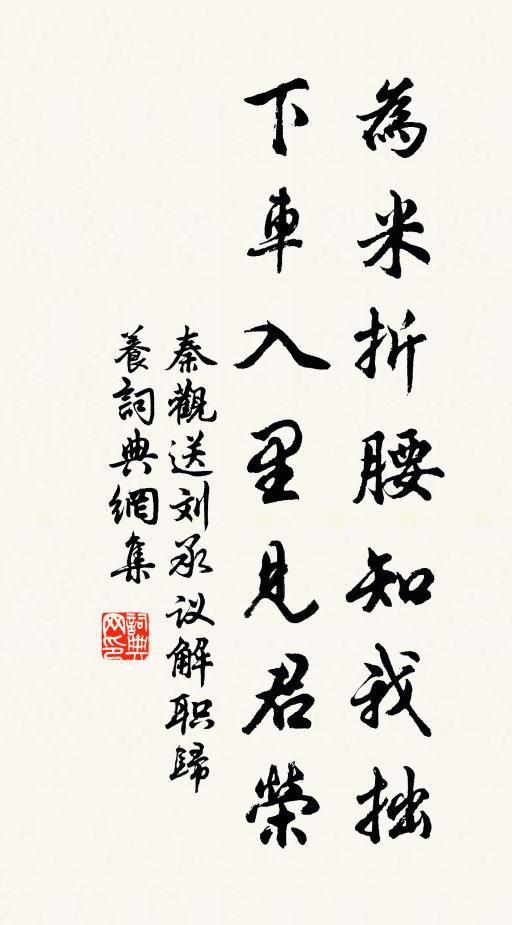 為米折腰知我拙
下車入里見君榮
秦觀送刘承议解职歸
養詞典網集
詞典
网印